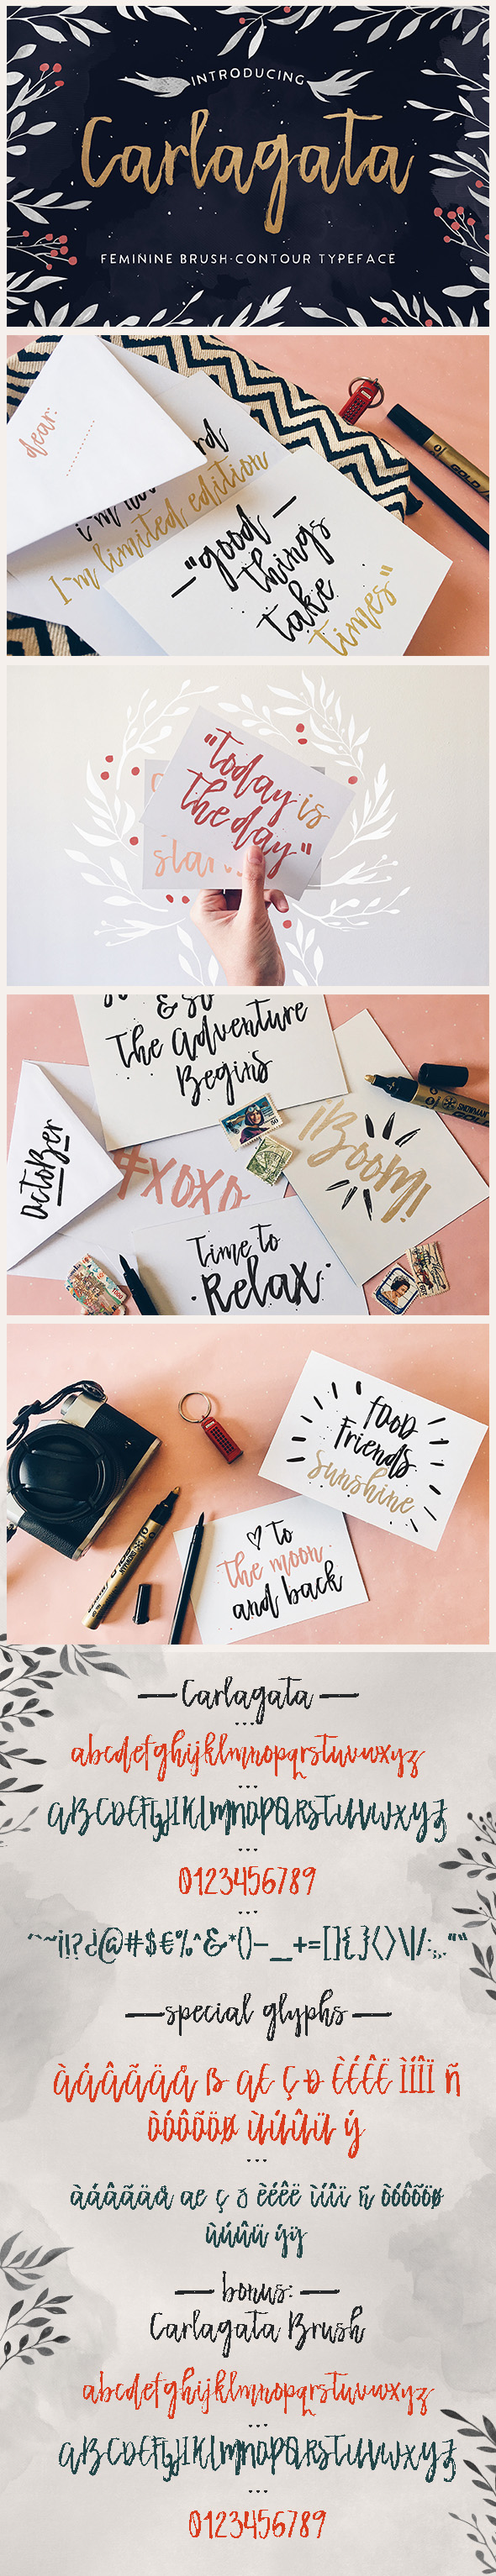 INTRODUCING
Carlagata
FEMININE BRUSH-CONTOUR TYPEFACE
dear:
I'm limited edition
"good
things
take
times"
"today is
the day"
& so
The Adventure
Begins
OctoBer
#XOXO
!Boom!
Time to
Relax
fOOD
Friends
Sunshine
♡ To
the moon
and back
Carlagata
abcdefghijklmnopqrstuvwxyz
ABCDEFGHIJKLMNOPQRSTUVWXYZ
0123456789
special glyphs
ÀÁÂÃÄÅ ß Æ Ç Ð ÈÉÊË ÌÍÎÏ Ñ
ÒÓÔÕÖØ ÙÚÛÜ Ý
àáâãäå æ ç ð èéêë ìíîï ñ òóôõöø
ùúûü ýÿ
bonus:
Carlagata Brush
abcdefghijklmnopqrstuvwxyz
ABCDEFGHIJKLMNOPQRSTUVWXYZ
0123456789